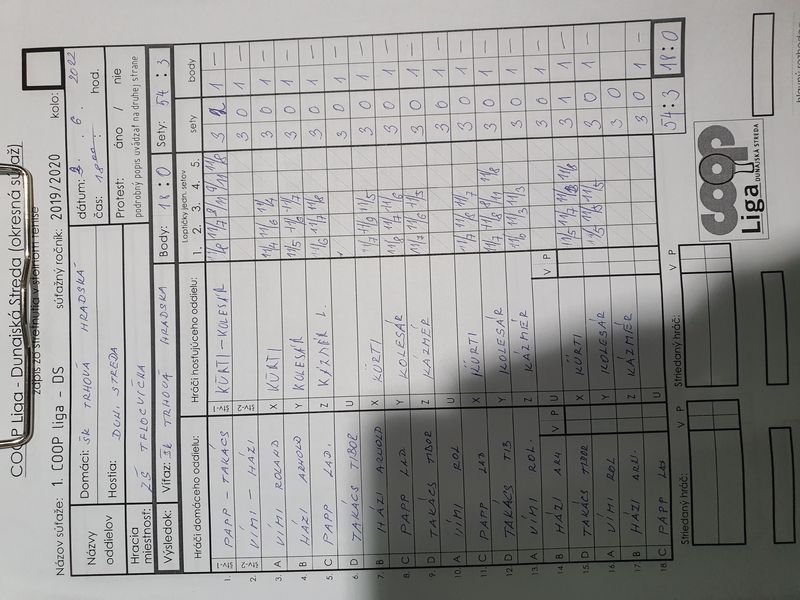 COOP Liga - Dunajská Streda (okresná súťaž)
zápis zo stretnutia v stolnom tenise
Názov súťaže: 1. COOP liga - DS súťažný ročník: 2019/2020 kolo:
Názvy oddielov Domáci: ŠK TRHOVÁ HRADSKÁ dátum: 6. 2022
Hostia: DUN. STREDA čas: 18 00 hod.
Hracia miestnosť: ZŠ TELOCVIČŇA Protest: áno / nie
podrobný popis uvádzať na druhej strane
Výsledok: Víťaz: ŠK TRHOVÁ HRADSKÁ Body: 18 : 0 Sety: 54 : 3
Hráči domáceho oddielu: Hráči hosťujúceho oddielu: Loptičky jedn. setov 1. 2. 3. 4. 5. sety body
1. PAPP - TAKÁCS KÜRTI - KOLESÁR 1 -
2. VÍMI - HÁZI 3 0 1 -
3. A VÍMI ROLAND X KÜRTI 11/4 11/6 11/4 3 0 1 -
4. B HÁZI ARNOLD Y KOLESÁR 11/5 11/7 3 0 1 -
5. C PAPP LAD. Z KÁZMÉR L. 11/6 11/7 11/8 3 0 1 -
6. D TAKÁCS TIBOR U 3 0 1 -
7. B HÁZI ARNOLD X KÜRTI 11/7 11/9 11/5 3 0 1 -
8. C PAPP LAD. Y KOLESÁR 11/8 11/7 11/6 3 0 1 -
9. D TAKÁCS TIBOR Z KÁZMÉR 11/7 11/6 11/5 3 0 1 -
10. A VÍMI ROL U 3 0 1 -
11. C PAPP LAD X KÜRTI 11/7 11/8 11/7 3 0 1 -
12. D TAKÁCS TIB Y KOLESÁR 11/8 3 1 1 -
13. A VÍMI ROL. Z KÁZMÉR 11/6 11/3 11/3 3 0 1 -
V P V P
14. B HÁZI ARN U 3 0 1 -
15. D TAKÁCS TIBOR X KÜRTI 11/8 3 1 1 -
16. A VÍMI ROL Y KOLESÁR 3 0 1 -
17. B HÁZI ARN. Z KÁZMÉR 3 0 1 -
18. C PAPP LAD U 3 0 1 -
54:3 18:0
Striedaný hráč: V P Striedaný hráč: V P
coop
Liga DUNAJSKÁ STREDA